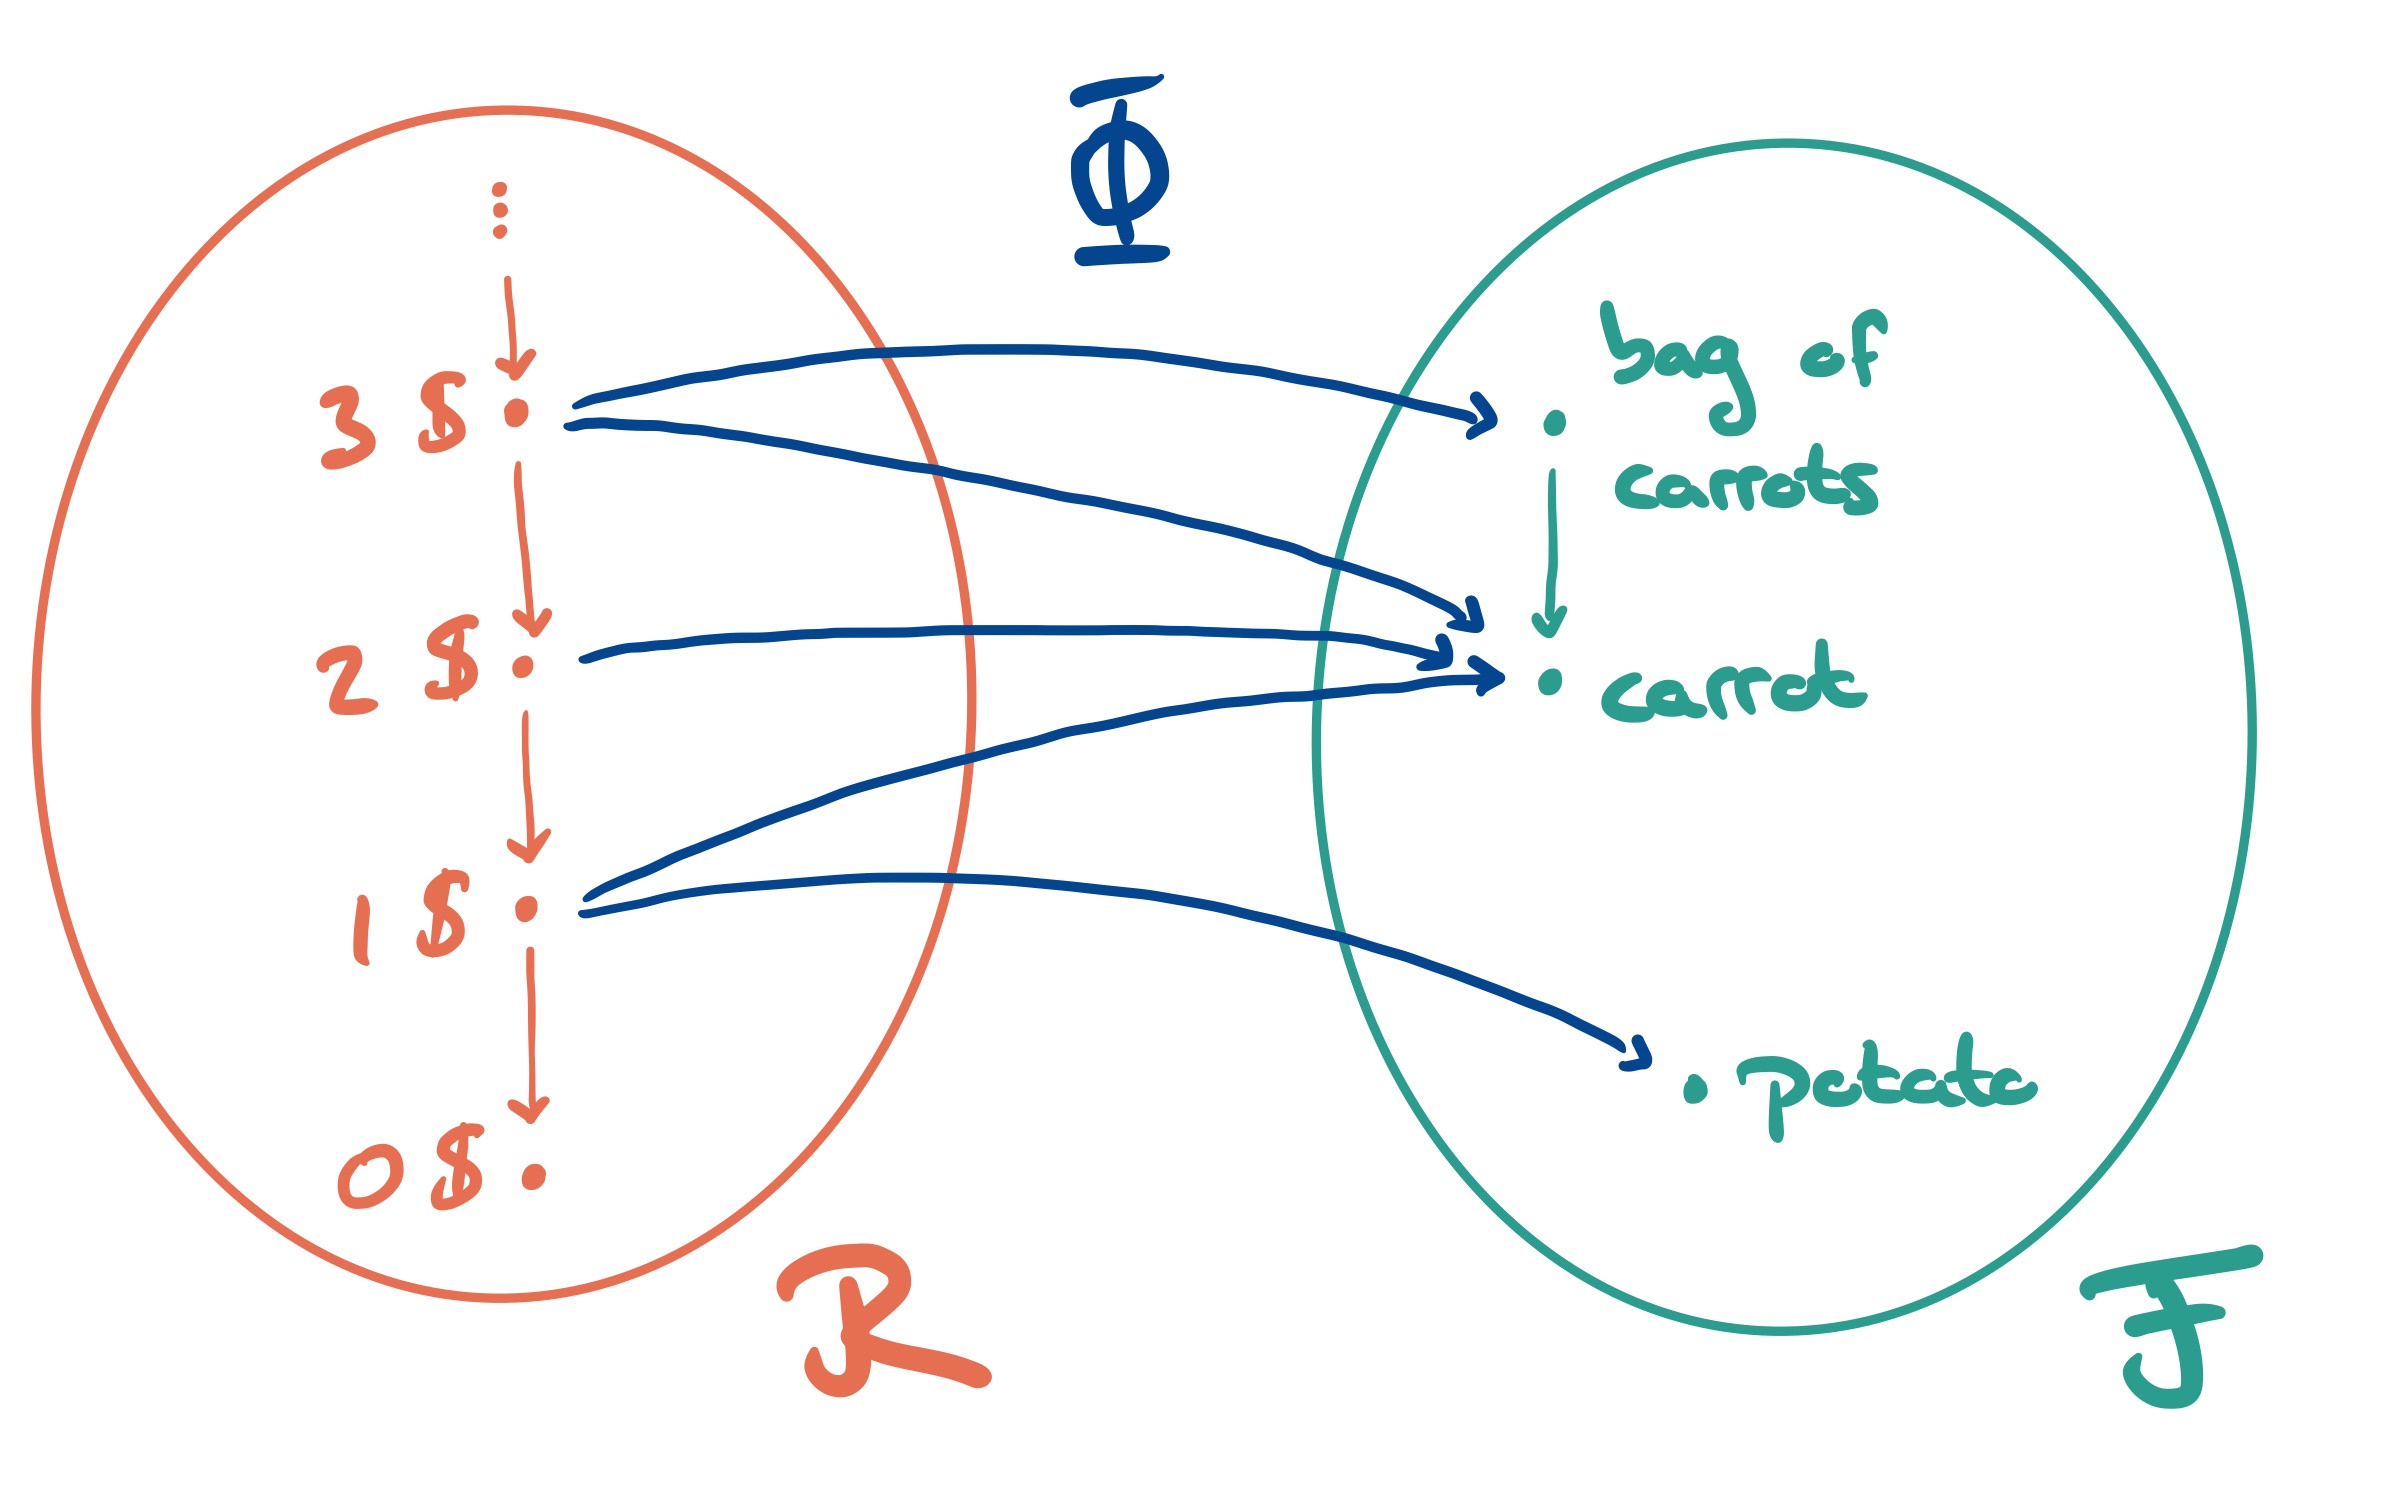 Φ
3 $
2 $
1 $
0 $
R
bag of
carrots
carrot
potato
F